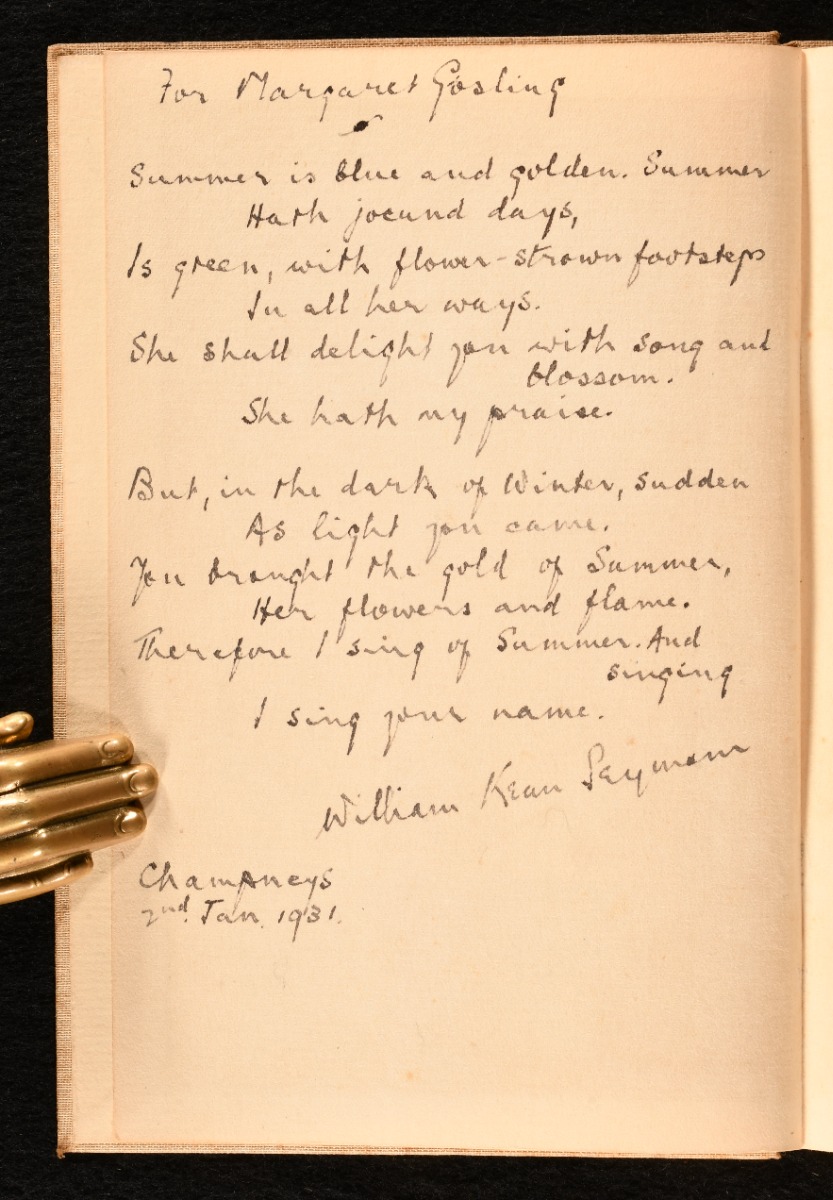 For Margaret Gosling
Summer is blue and golden. Summer
Hath jocund days,
Is green, with flower-strown footsteps
In all her ways.
She shall delight you with song and
blossom.
She hath my praise.
But, in the dark of Winter, sudden
As light you came.
You brought the gold of Summer,
Her flowers and flame.
Therefore I sing of Summer. And
singing
I sing your name.
William Kean Seymour
Champneys
2nd. Jan. 1931.